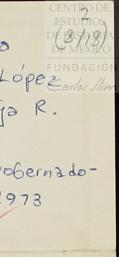 CENTRO DE
ESTUDIOS
DE HISTORIA
DE MÉXICO
FUNDACIÓN
Carlos Slim
2
(8/13)
o
López
ja R.
obernado-
1973